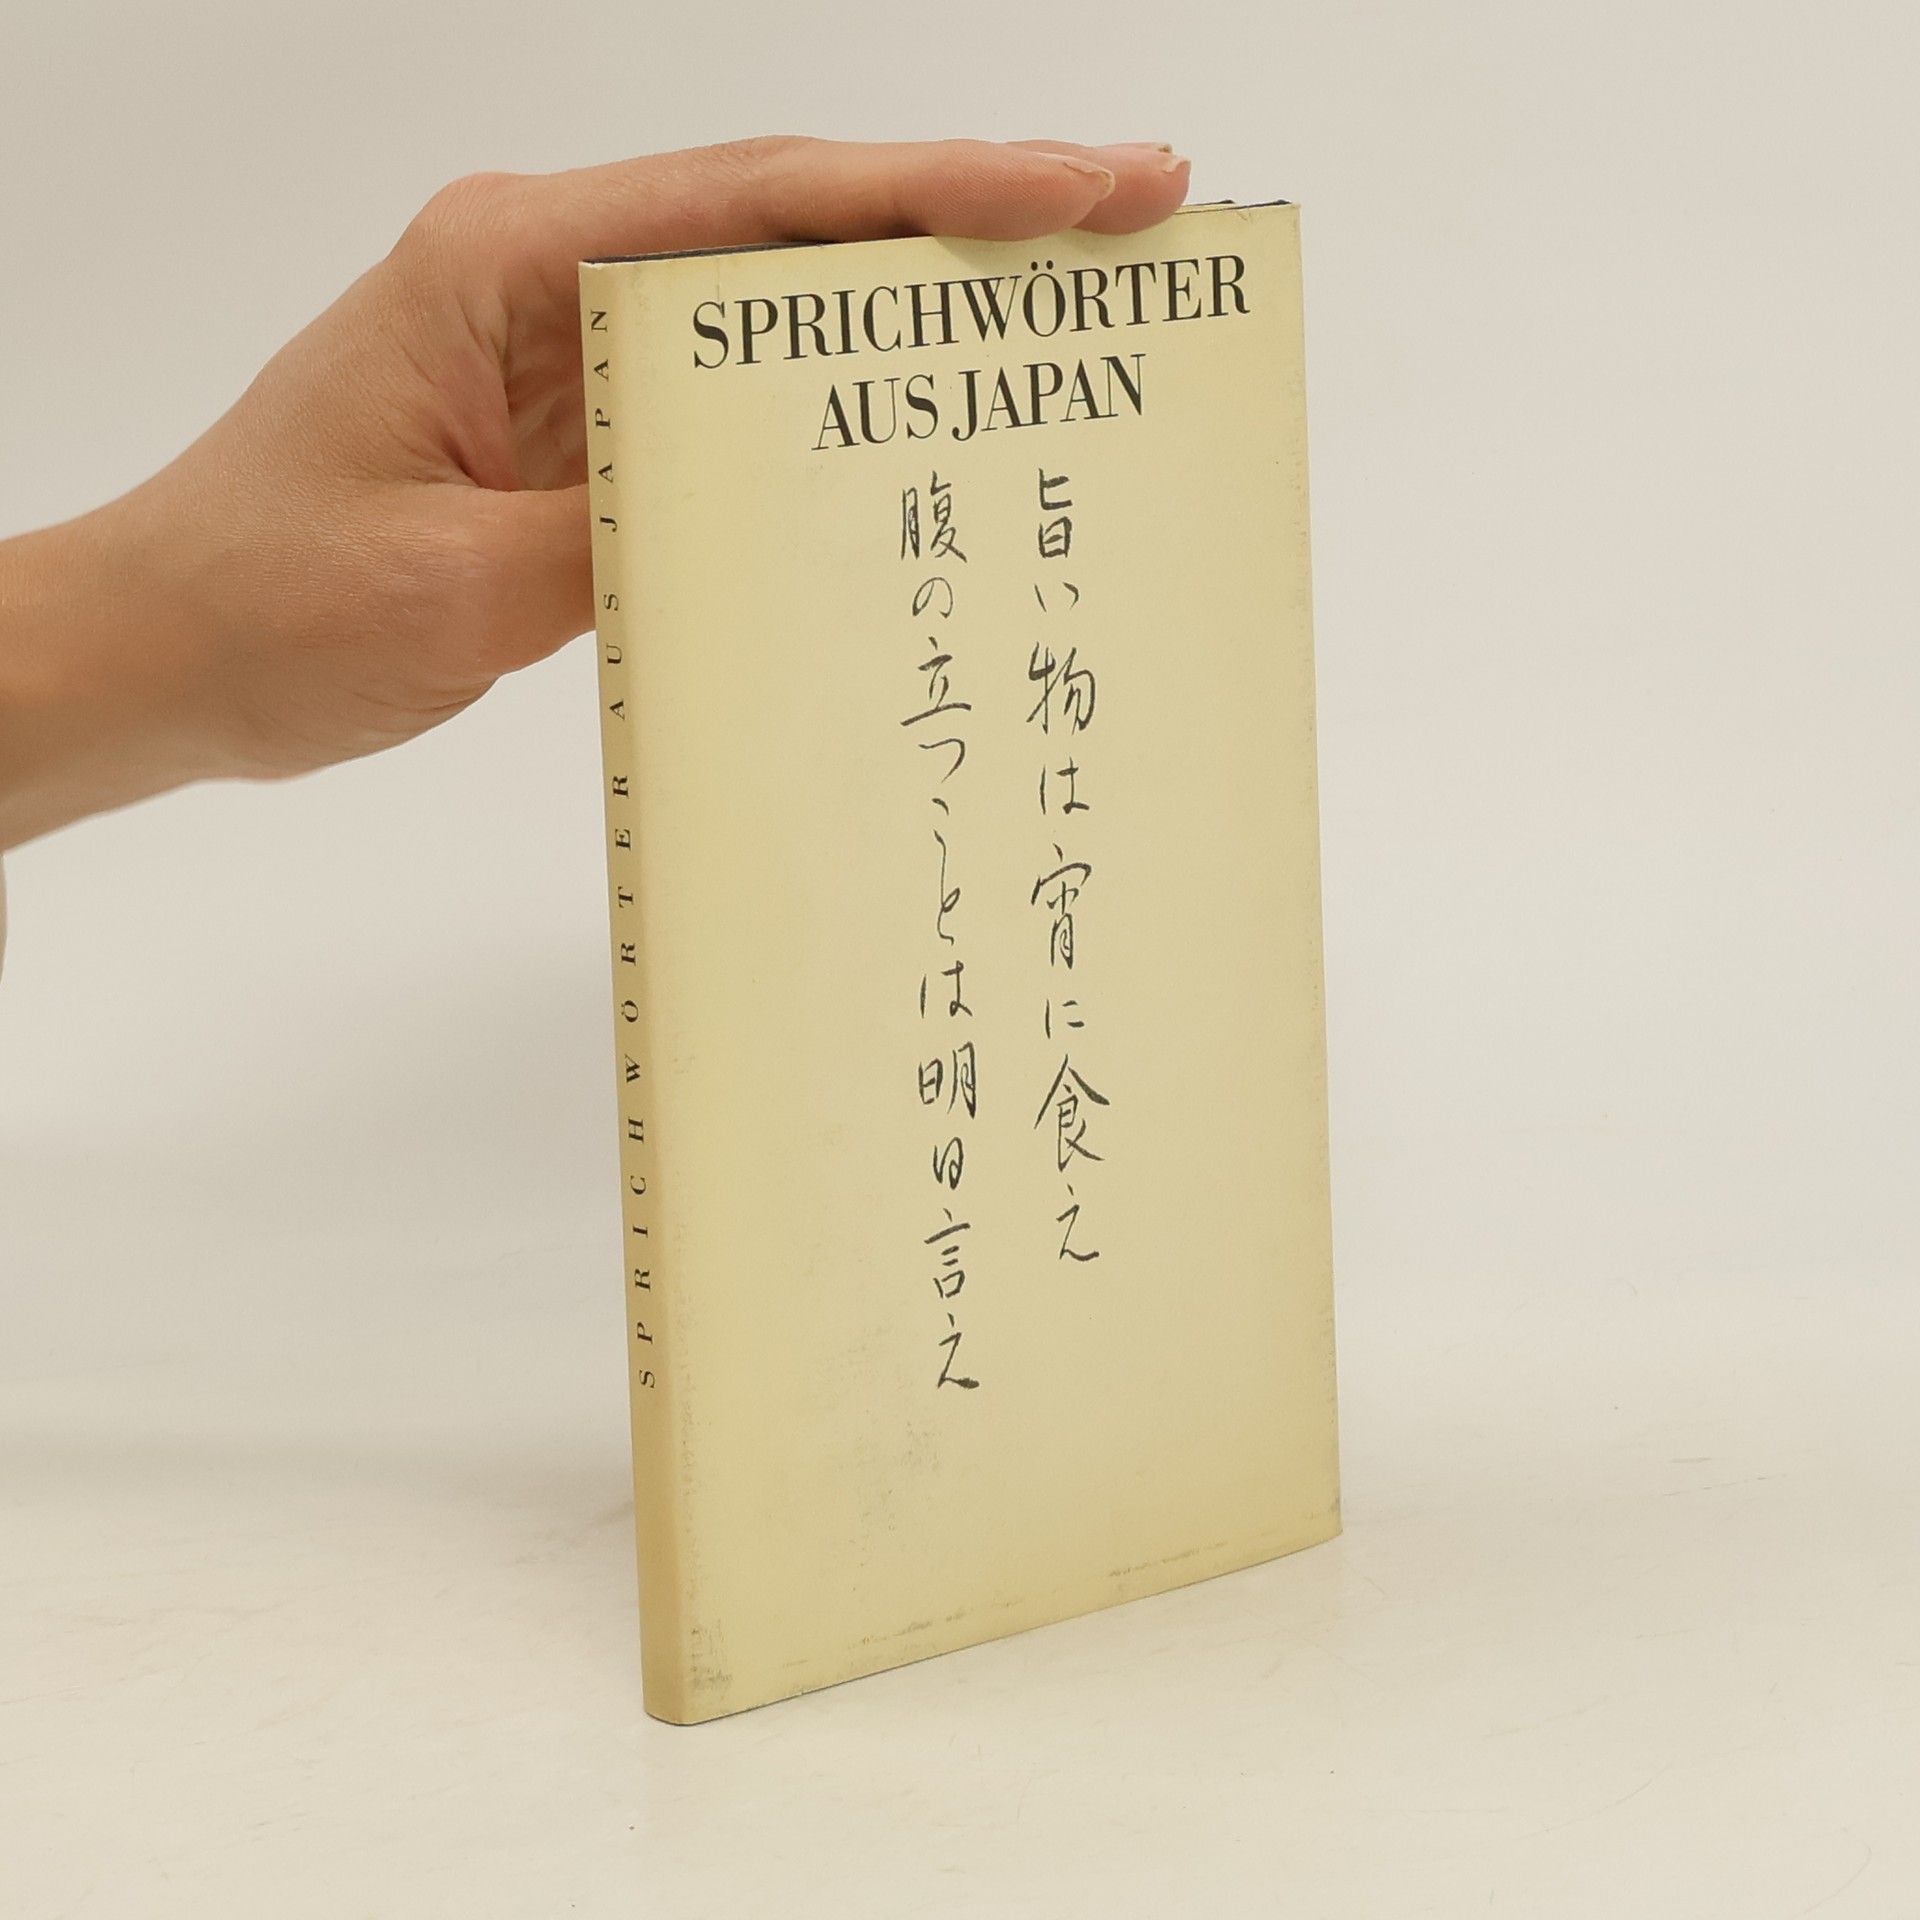 SPRICHWÖRTER
AUS JAPAN
旨い物は宵に食え
腹の立つことは明日言え
SPRICHWÖRTER AUS JAPAN